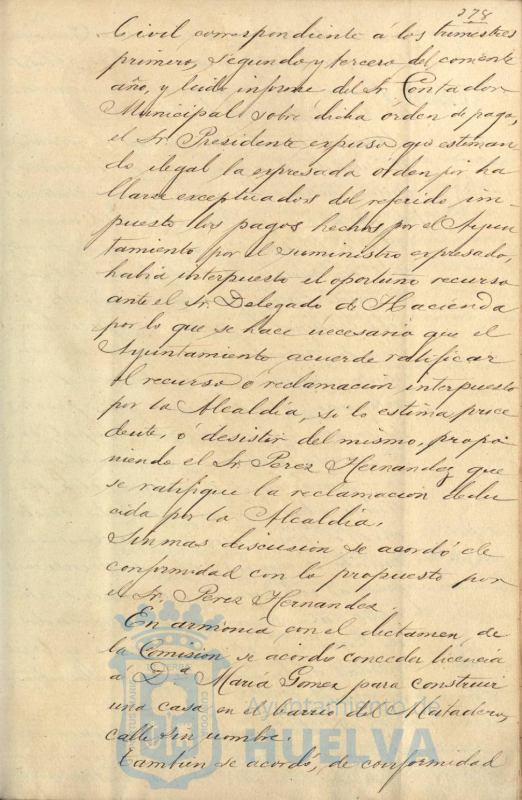 278
Civil, correspondiente á los trimestres
primero, segundo y tercero del corriente
año, y leido informe del Sr. Contador
Municipal sobre dicha órden de pago,
el Sr. Presidente expuso que estiman-
do ilegal la expresada órden por ha
llarse exceptuados del referido im-
puesto los pagos hechos por el Ayun
tamiento por el suministro expresado,
habia interpuesto el oportuno recurso
ante el Sr. Delegado de Hacienda
por lo que se hace necesario que el
Ayuntamiento acuerde ratificar
el recurso ó reclamación interpuesto
por la Alcaldia, si lo estima proce
dente, ó desistir del mismo, propo
niendo el Sr. Perez Hernandez que
se ratifique la reclamacion dedu
cida por la Alcaldia.
Sin mas discusion se acordó de
conformidad con lo propuesto por
el Sr. Perez Hernandez.
En armonia con el dictamen de
la Comision se acordó conceder licencia
á Dª Maria Gomez para construir
una casa en el barrio del Matadero,
calle sin nombre.
Tambien se acordó, de conformidad
Ayuntamiento de
HUELVA